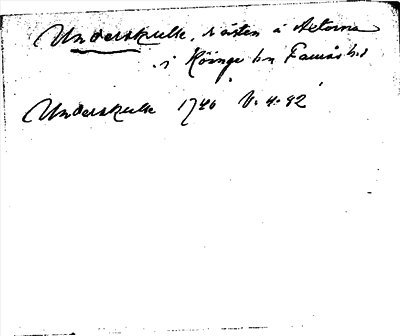 Underskulle, i östen å Aekorna
i Köinge sn Faurås hd
Underskulle 1746 V. 4. 92